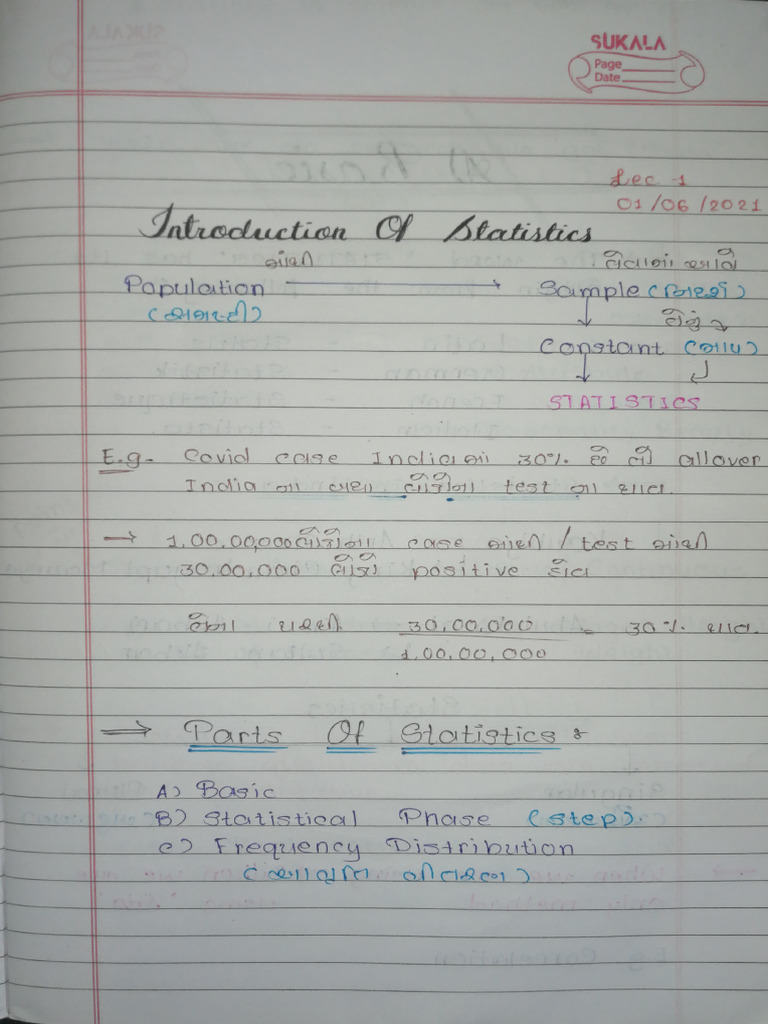 SUKALA
Page
Date
Lec-1
01/06/2021
Introduction Of Statistics
માંથી લેવામાં આવે
Population → Sample (નિદર્શ)
(સમષ્ટી)
Constant (માપ)
STATISTICS
E.g. Covid case Indiaમાં 30% છે તો allover
India ના બધા લોકોના test ના થાય.
→ 1,00,00,000 લોકોના case માંથી / test માંથી
30,00,000 લોકો positive હોય
તેના પરથી 30,00,000 / 1,00,00,000 = 30% થાય.
⇒ Parts Of Statistics :
A) Basic
B) Statistical Phase (step).
C) Frequency Distribution
(આવૃત્તિ વીતરણ)